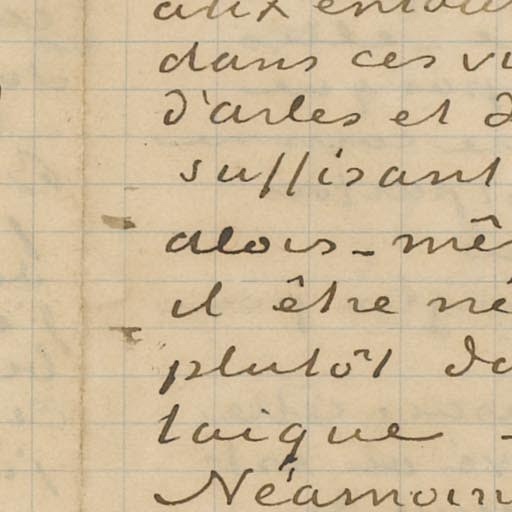 aux
dans ces
d'arles et
suffisant
alors - mê
il être né
plutôt da
laique -
Néamoin